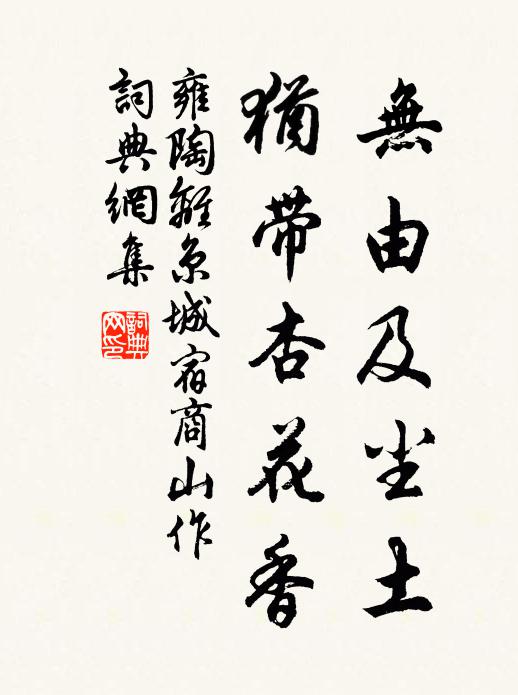 無由及尘土
猶带杏花香
雍陶離京城宿商山作
詞典網集
詞典網印